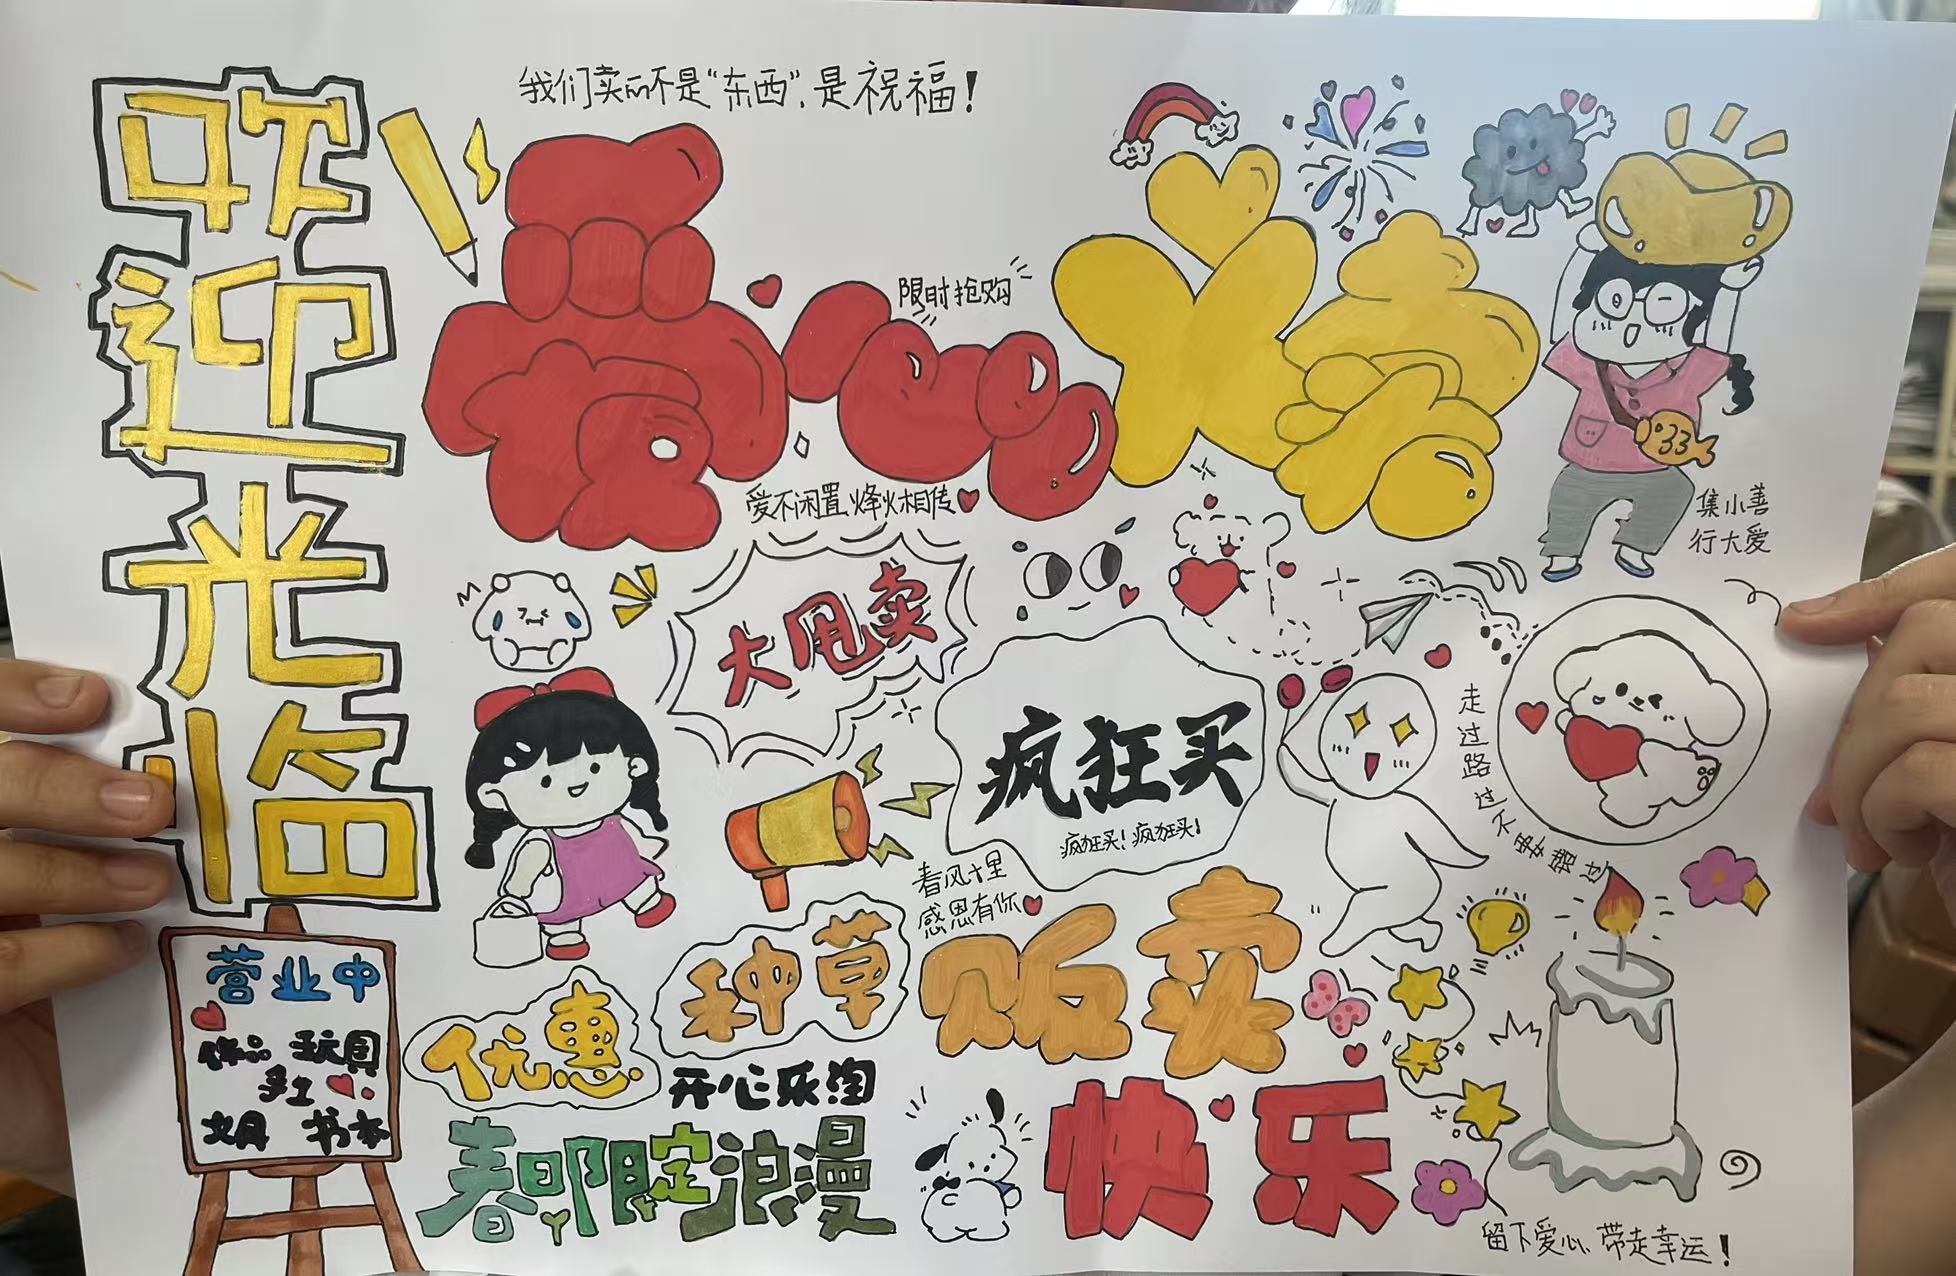 欢迎光临
我们卖的不是“东西”，是祝福！
爱心义卖
限时抢购
爱不闲置、烽火相传
集小善
行大爱
大甩卖
疯狂买
疯狂买！疯狂买！
走过路过不要错过
春风十里
感恩有你
营业中
作品 玩具
手工
文具 书本
优惠
种草
贩卖
快乐
开心乐淘
春日限定浪漫
留下爱心、带走幸运！